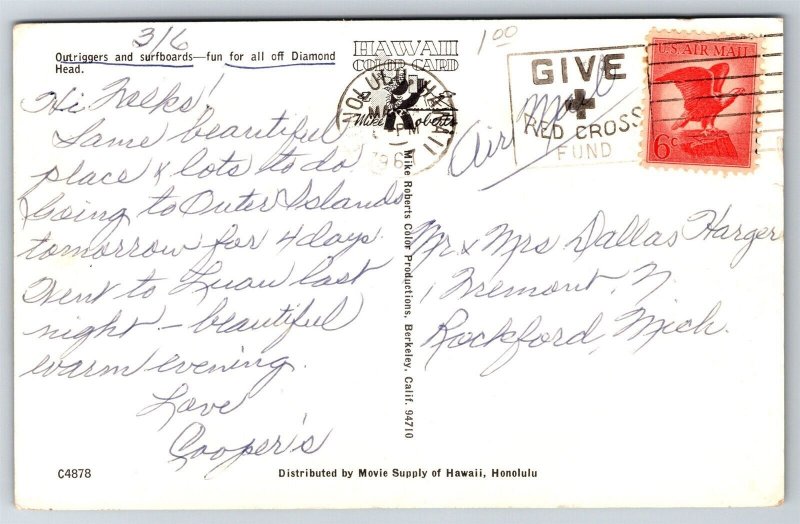 3/6
1.00
Outriggers and surfboards—fun for all off Diamond
Head.
HAWAII
COLOR CARD
Mike Roberts
HONOLULU, HAWAII
PM
196
GIVE
RED CROSS
FUND
U.S. AIR MAIL
6¢
Air Mail
Hi
Same beautiful
place & lots to do
Going to Outer Islands
tomorrow for 4 days
Went to Luau last
night – beautiful
warm evening.
Love
Cooper's
Mr & Mrs Dallas Harger
1 Fremont, N.
Rockford, Mich.
Mike Roberts Color Productions, Berkeley, Calif. 94710
C4878
Distributed by Movie Supply of Hawaii, Honolulu